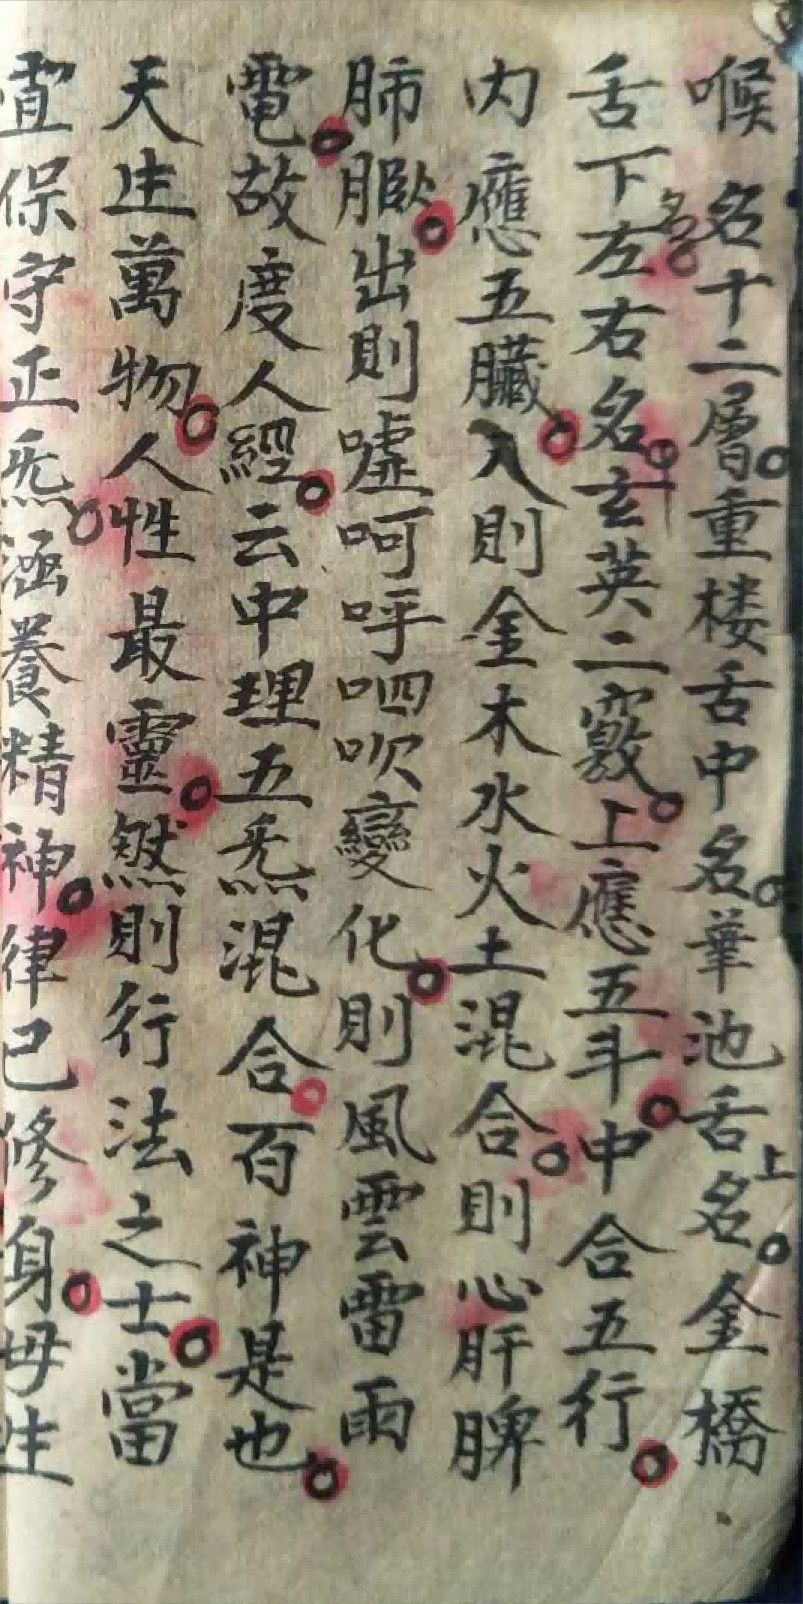 喉名十二層。重楼舌中名。華池舌上名。金橋
舌下左右名。玄英二竅。上應五斗。中合五行。
内應五臟。入則金木水火土混合。則心肝脾
肺。出則嘘呵呼呬吹變化。則風雲雷雨
電。故度人經。云中理五炁混合。百神是也。
天生萬物。人性最靈。然則行法之士。當
宜保守正炁。涵養精神。律己修身。毋生